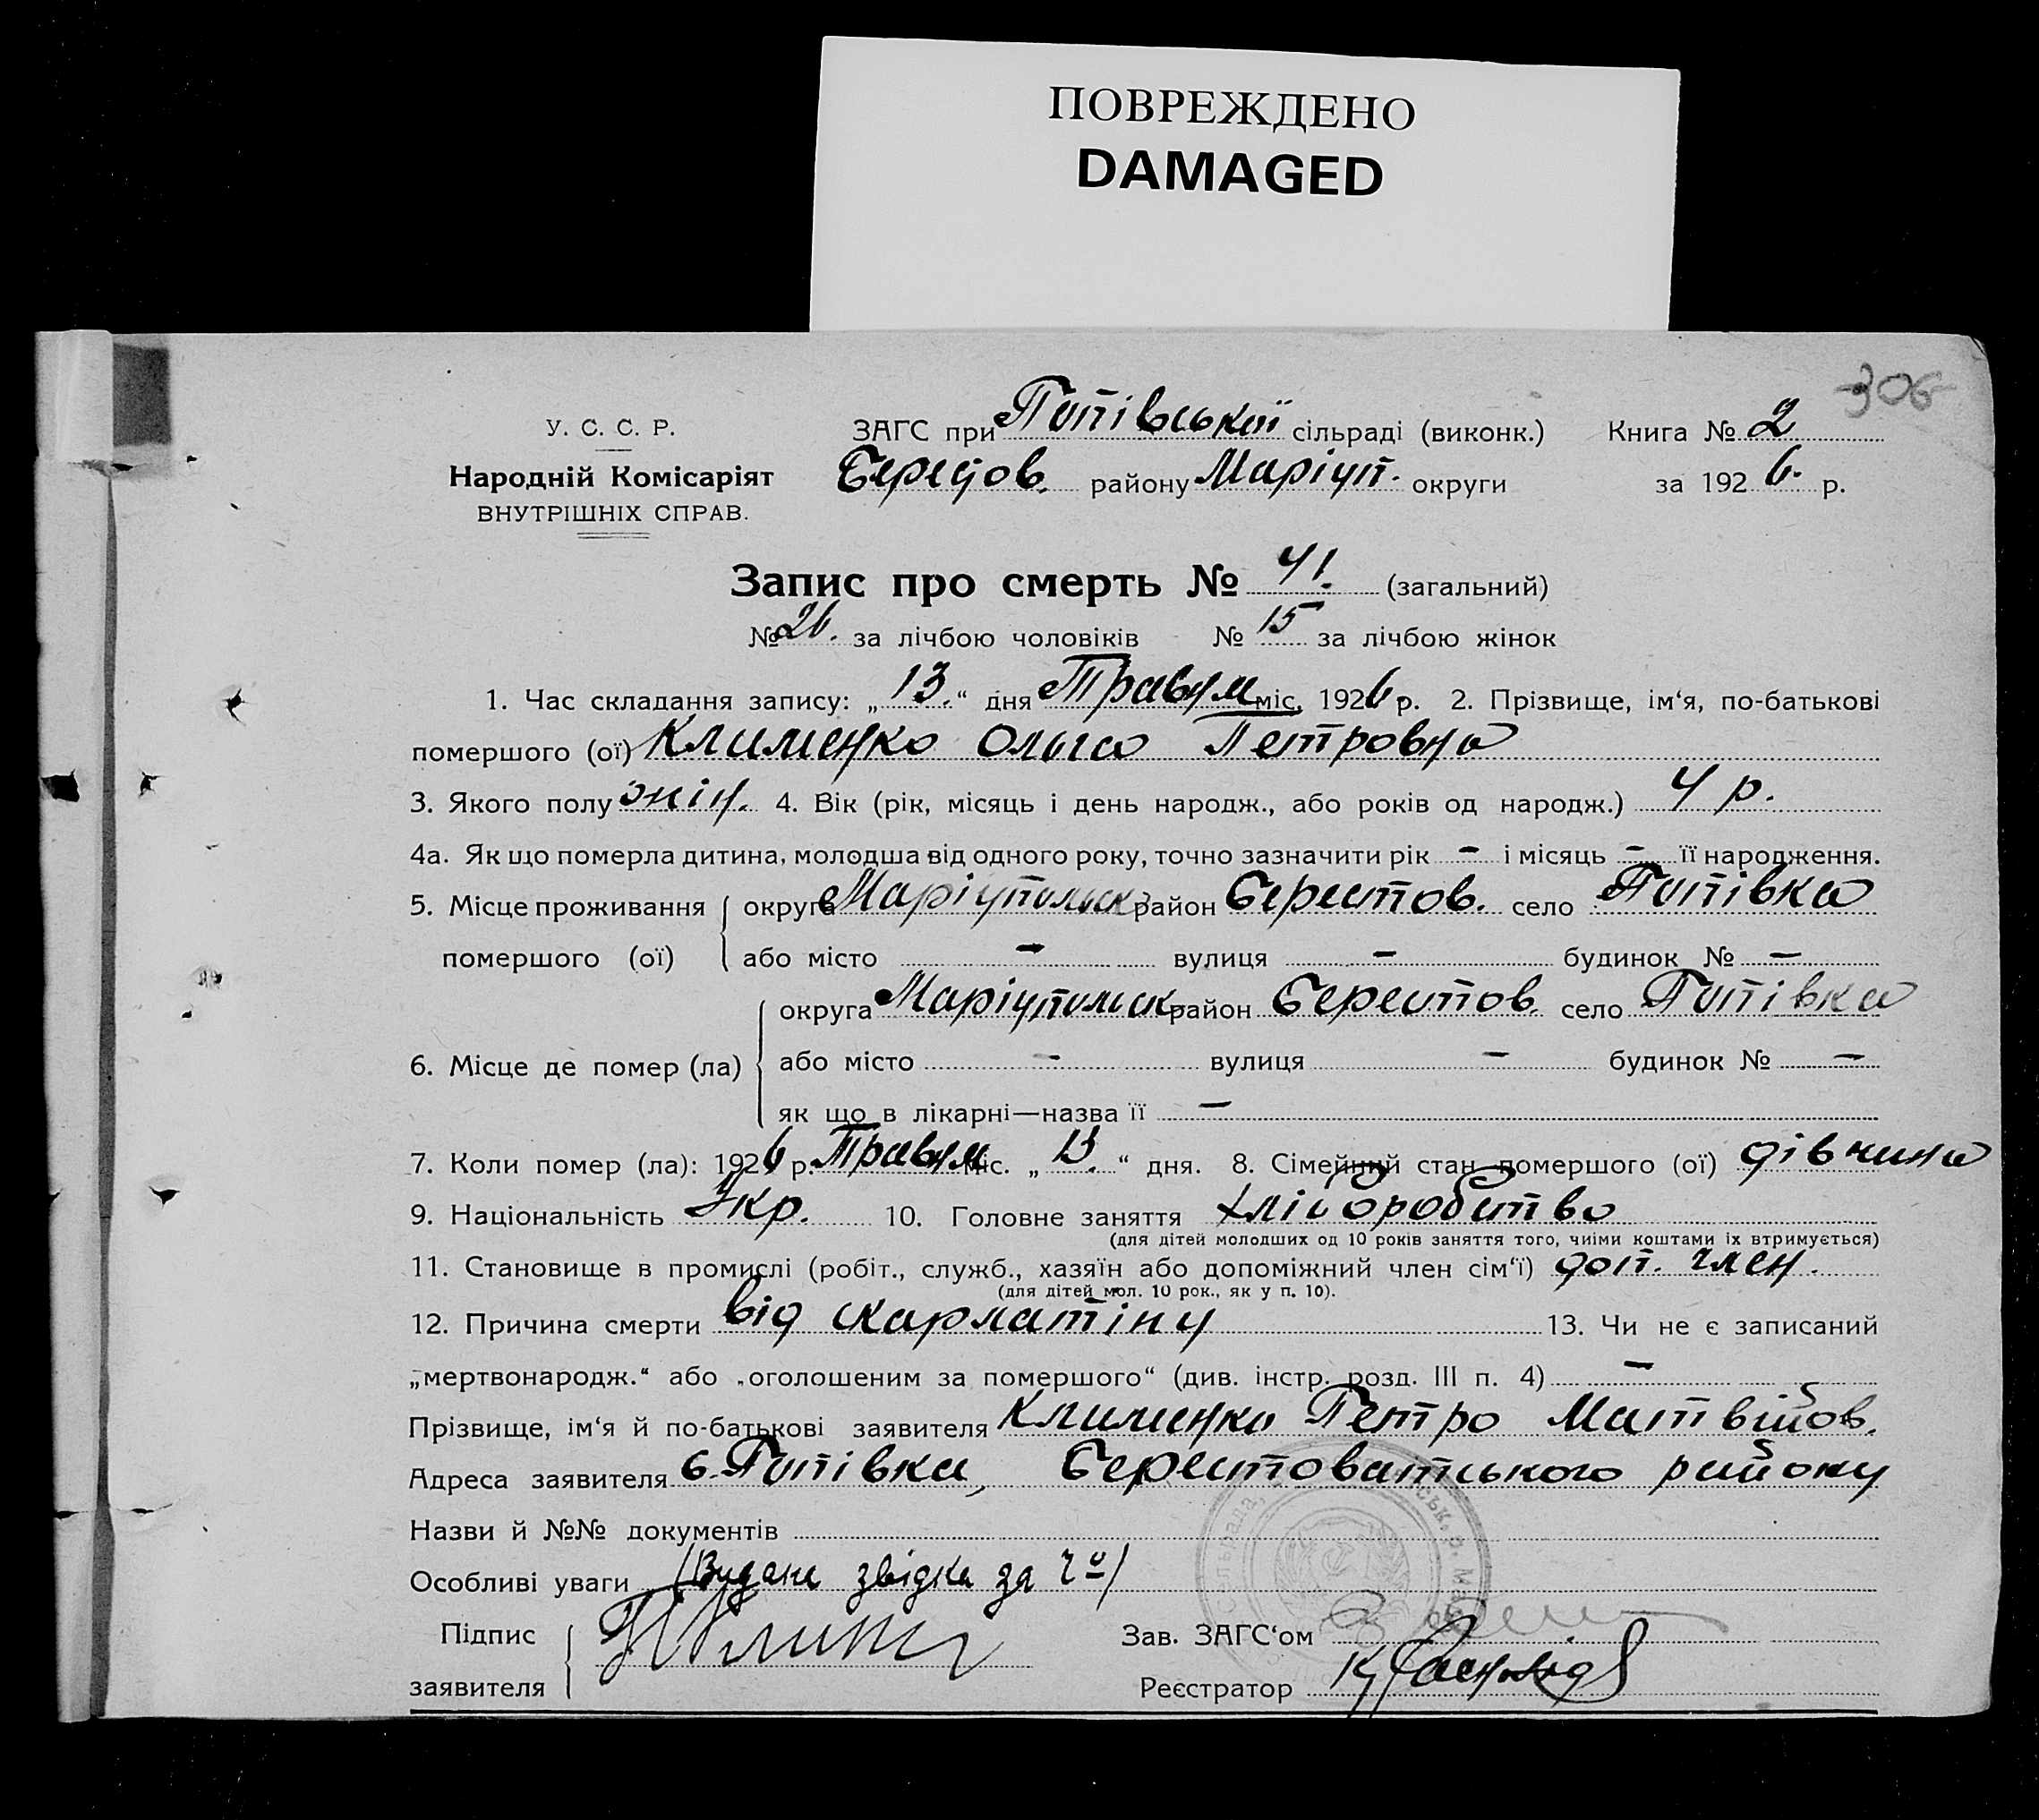 ПОВРЕЖДЕНО
DAMAGED
306
У. С. С. Р.
Народній Комісаріят
ВНУТРІШНІХ СПРАВ.
ЗАГС при Попівської сільраді (виконк.) Книга № 2
району Маріуп. округи за 1926 р.
Запис про смерть № 41. (загальний)
№ 26. за лічбою чоловіків № 15 за лічбою жінок
1. Час складання запису: „13.“ дня Травня міс. 1926 р. 2. Прізвище, ім‘я, по-батькові
помершого (ої) Клименко Ольга Петровна
3. Якого полу жін. 4. Вік (рік, місяць і день народж., або років од народж.) 4 р.
4а. Як що померла дитина, молодша від одного року, точно зазначити рік – і місяць – її народження.
5. Місце проживання округа Маріупольск район Берестов. село Попівка
помершого (ої) або місто – вулиця – будинок № –
округа Маріупольск район Берестов. село Попівка
6. Місце де помер (ла) або місто – вулиця – будинок № –
як що в лікарні—назва її –
7. Коли помер (ла): 1926 р. Травня міс. „13.“ дня. 8. Сімейний стан помершого (ої) дівчина
9. Національність Укр. 10. Головне заняття хліборобство
(для дітей молодших од 10 років заняття того, чиїми коштами їх втримується)
11. Становище в промислі (робіт., служб., хазяїн або допоміжний член сім‘ї) доп. член.
(для дітей мол. 10 рок., як у п. 10).
12. Причина смерти від скарлатіни 13. Чи не є записаний
„мертвонародж.“ або „оголошеним за помершого“ (див. інстр. розд. III п. 4) –
Прізвище, ім‘я й по-батькові заявителя Клименко Петро Матвійов.
Адреса заявителя с. Попівка, Берестоватського району
Назви й №№ документів
Особливі уваги (Видана звідка за
Підпис
Зав. ЗАГС‘ом
заявителя
Реєстратор